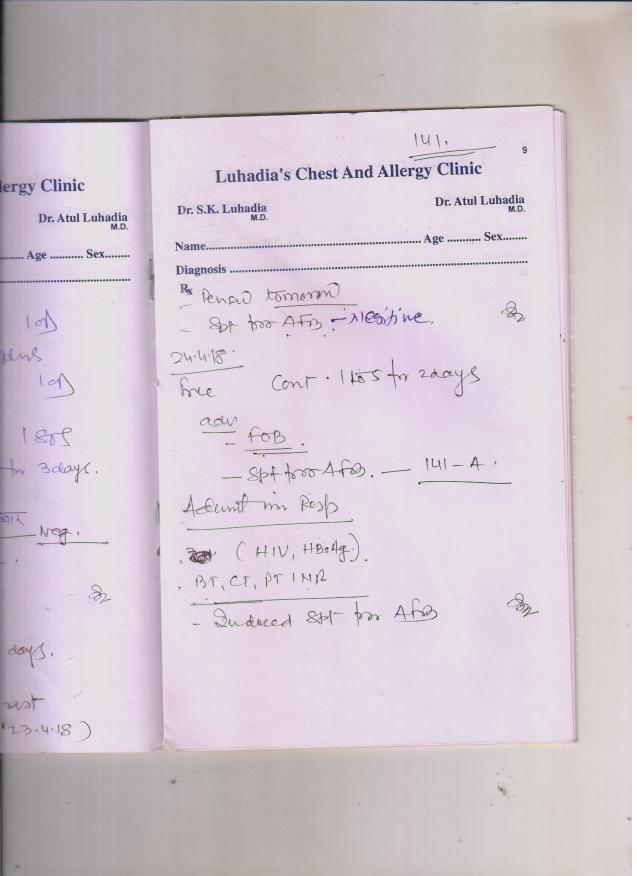 lergy Clinic
Dr. Atul Luhadia
M.D.
Age .......... Sex........
for 3 days.
Neg.
days.
23.4.18 )
141.
9
Luhadia's Chest And Allergy Clinic
Dr. S.K. Luhadia
M.D.
Dr. Atul Luhadia
M.D.
Name.................... Age .......... Sex.......
Diagnosis ....................
Rx
tomorrow
- Spt for AFB - Negitive.
24.4.18.
Cont. 1 to 5 for 2 days
adv
- FOB.
- Spt for AFB. - 141 - A.
Admit in Resp
(HIV, HBsAg).
. BT, CT, PT INR
- Induced Spt for AFB